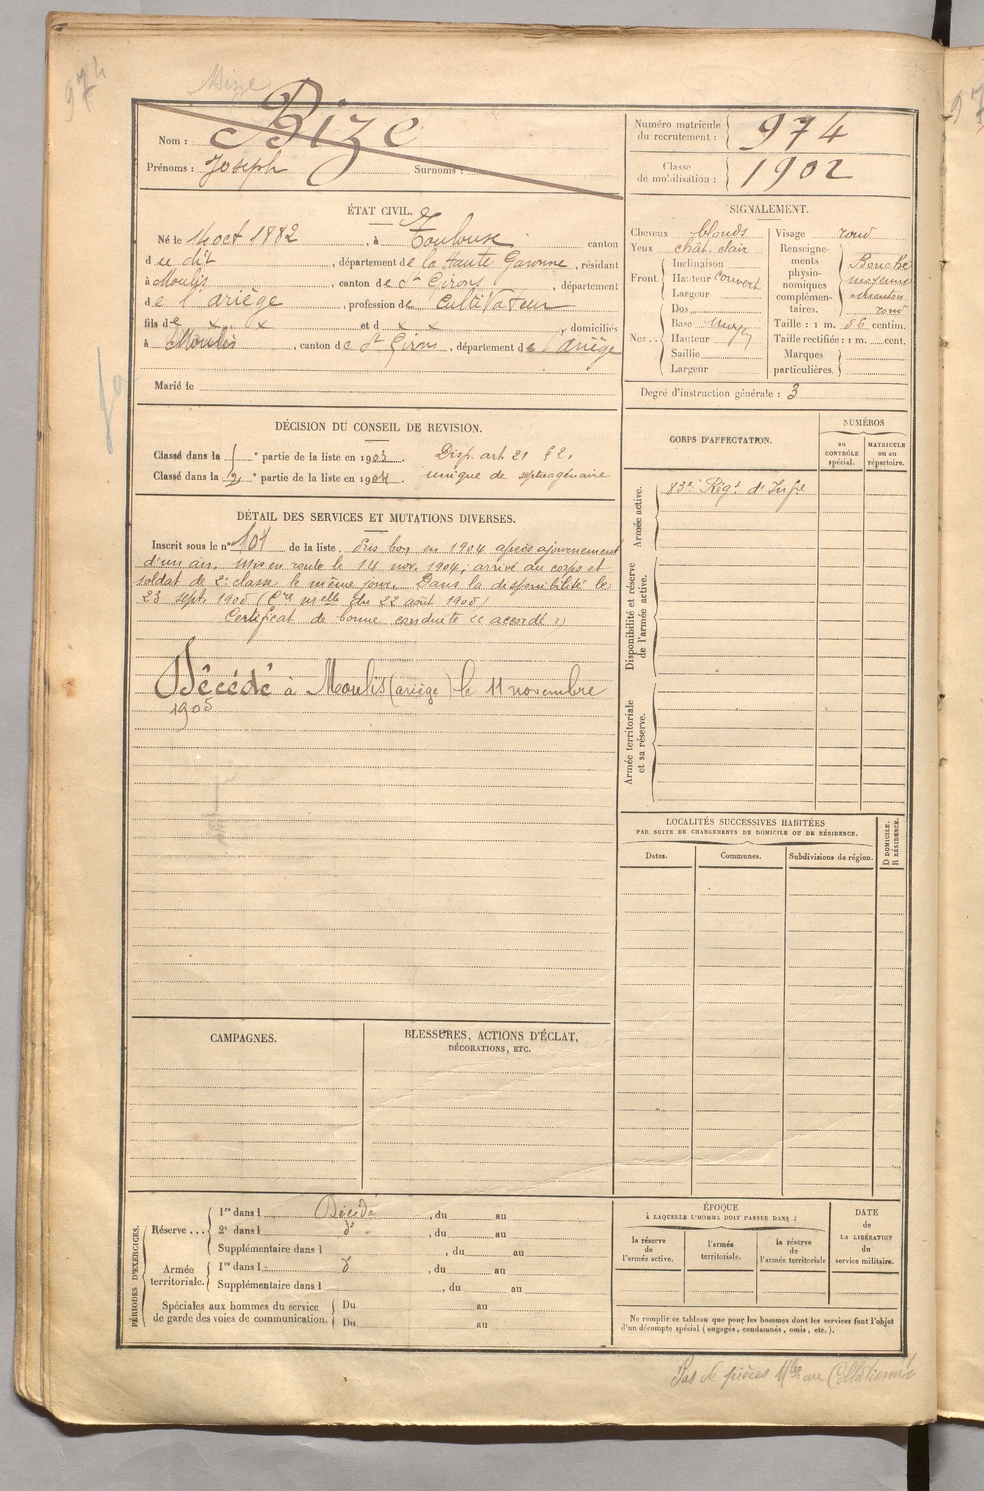 974
Bize
Nom : Bize
Prénoms : Joseph Surnoms :
Numéro matricule du recrutement : 974
Classe de mobilisation : 1902
ÉTAT CIVIL.
Né le 14 oct 1882, à Toulouse canton
d u dit, département de la Haute Garonne, résidant
à Moulis, canton de St Girons, département
de l'Ariège, profession de Cultivateur
fils de x x et d x x domiciliés
à Moulis, canton de St Girons, département de l'Ariège
Marié le
SIGNALEMENT.
Cheveux blonds
Yeux chât. clair
Front. Inclinaison
Hauteur couvert
Largeur
Nez... Dos
Base moy
Hauteur
Saillie
Largeur
Visage rond
Renseignements physionomiques complémentaires. Bouche moyenne menton rond
Taille : 1 m. 56 centim.
Taille rectifiée : 1 m. cent.
Marques particulières.
Degré d'instruction générale : 3
DÉCISION DU CONSEIL DE REVISION.
Classé dans la 1e partie de la liste en 1903. Disp. art. 21 § 2.
Classé dans la 2e partie de la liste en 1904. unique de septuagénaire
DÉTAIL DES SERVICES ET MUTATIONS DIVERSES.
Inscrit sous le n° 101 de la liste. Pris bon en 1904 après ajournement
d'un an. Mis en route le 14 nov. 1904, arrivé au corps et
soldat de 2e classe le même jour. Dans la disponibilité le
23 sept. 1905 (Cre melle du 22 août 1905)
Certificat de bonne conduite « accordé »
Décédé à Moulis (Ariège) le 11 novembre
1905
CORPS D'AFFECTATION.
NUMÉROS
au CONTRÔLE spécial.
MATRICULE ou au répertoire.
Armée active.
83e Régt d'Infie
Disponibilité et réserve de l'armée active.
Armée territoriale et sa réserve.
LOCALITÉS SUCCESSIVES HABITÉES
PAR SUITE DE CHANGEMENTS DE DOMICILE OU DE RÉSIDENCE.
Dates.
Communes.
Subdivisions de région.
D DOMICILE.
R RÉSIDENCE.
CAMPAGNES.
BLESSURES, ACTIONS D'ÉCLAT,
DÉCORATIONS, ETC.
PÉRIODES D'EXERCICES.
Réserve... 1re dans l Décédé, du au
2e dans l do, du au
Supplémentaire dans l, du au
Armée territoriale. 1re dans l do, du au
Supplémentaire dans l, du au
Spéciales aux hommes du service de garde des voies de communication. Du au
Du au
ÉPOQUE
À LAQUELLE L'HOMME DOIT PASSER DANS :
la réserve de l'armée active.
l'armée territoriale.
la réserve de l'armée territoriale
DATE de LA LIBÉRATION du service militaire.
Ne remplir ce tableau que pour les hommes dont les services font l'objet
d'un décompte spécial (engagés, condamnés, omis, etc.).
Pas de pièces